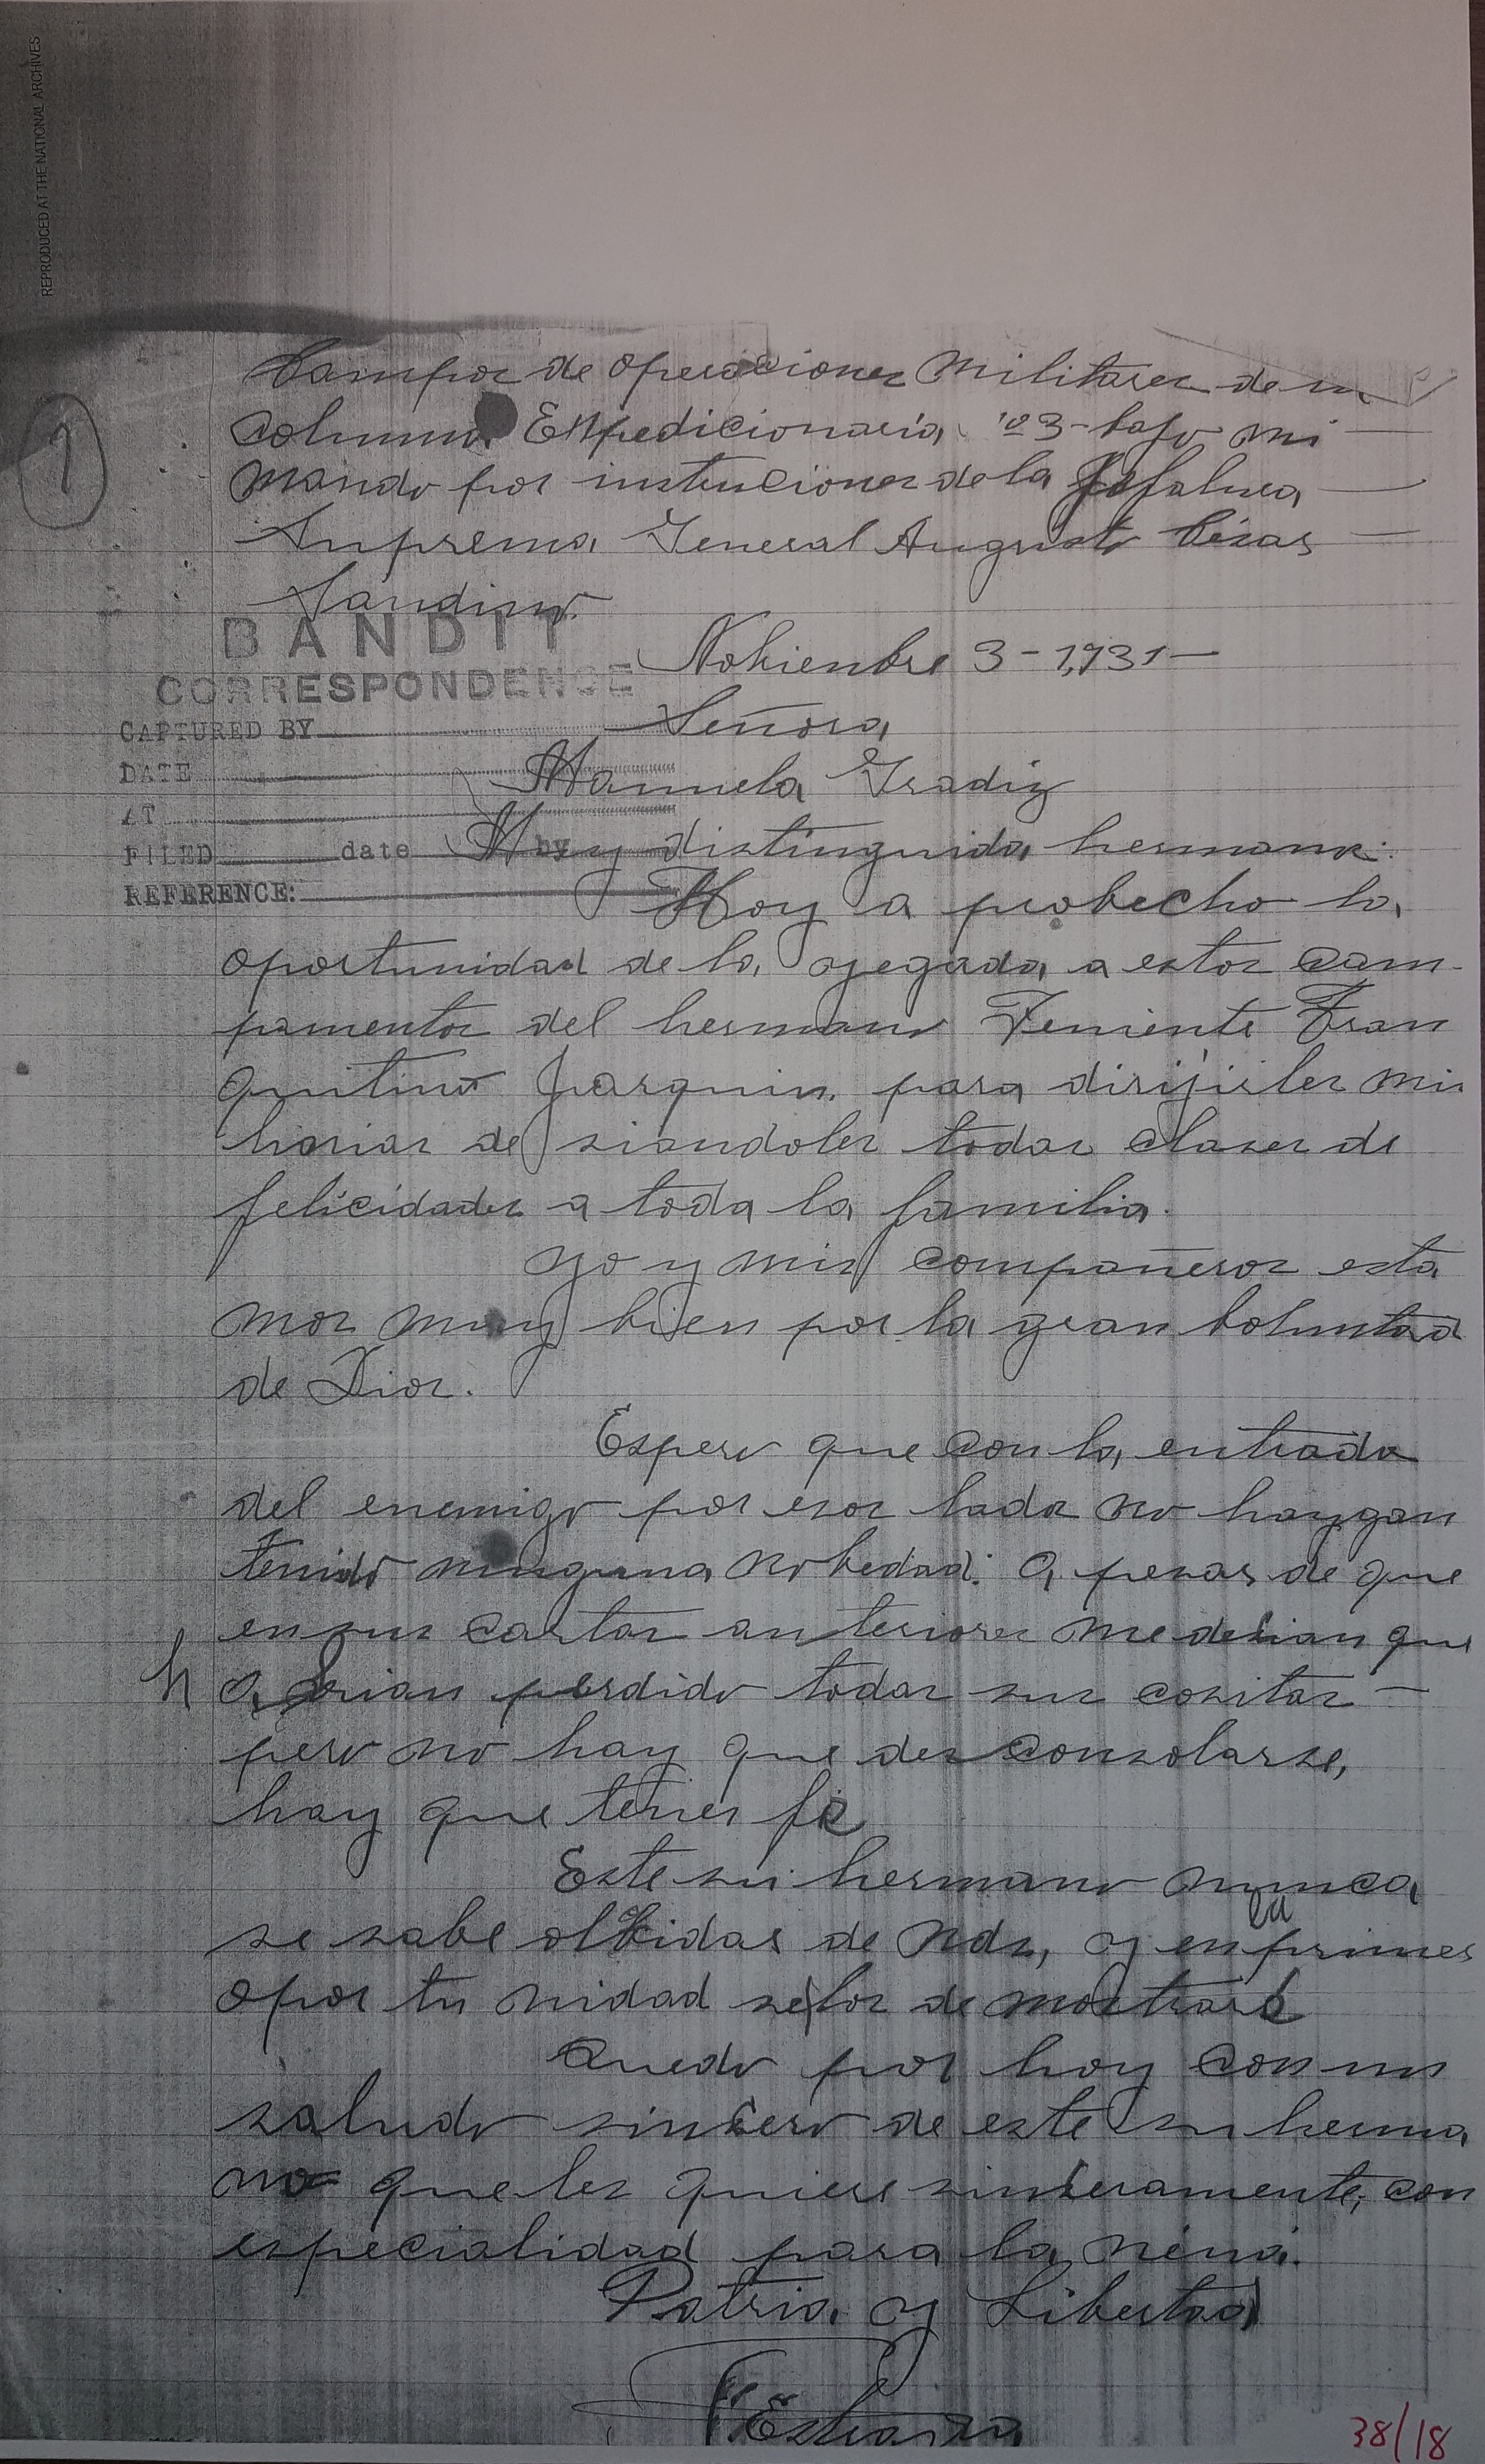 REPRODUCED AT THE NATIONAL ARCHIVES
1
Campos de operaciones Militares de
columna Expedicionaria No 3 - bajo mi
mando por instruciones de la Jefatura
Suprema General Augusto Cézar
Sandino.
BANDIT
CORRESPONDENCE
Nobienbre 3 - 1,931 -
CAPTURED BY
Señora
DATE
Manuela Gradiz
AT
FILED date by
Muy distinguida hermana:
REFERENCE:
Hoy a probecho la
oportunidad de la yegada a estos cam-
pamentos del hermano Teniente Fran
quilino Jarquin para dirijirles mis
horias de siandoles todas clases de
felicidades a toda la familia.
yo y mis compañeros esta
mos muy bien por la gran boluntad
de Dios.
Espero que con la entrada
del enemigo por esos lados no haygan
tenido ninguna nobedad. a pesar de que
en sus cartas anteriores me desian que
h abian perdido todas sus cositas -
pero no hay que des consolarse,
hay que tener fé
Este su hermano nunca
se sabe olbidar de Uds, y en la primer
opor tu nidad se los de mostraré
Quedo por hoy con un
saludo sinsero de este su herma
no que les quiere sinseramente, con
especialidad para la nena.
Patria y Libertad
Estrada
38/18